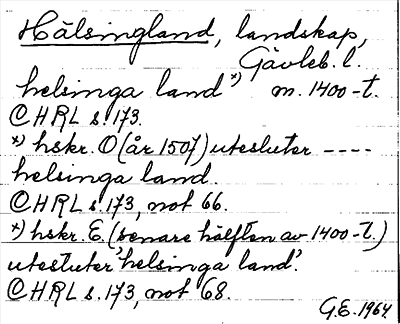 Hälsingland, landskap,
Gävleb. l.
helsinga land *) m. 1400-t.
CHRL s. 173.
*) hskr. O (år 1507) utesluter ----
helsinga land.
CHRL s. 173, not 66.
*) hskr. E. (senare hälften av 1400-t.)
utesluter 'helsinga land'.
CHRL s. 173, not 68.
G.E. 1964.